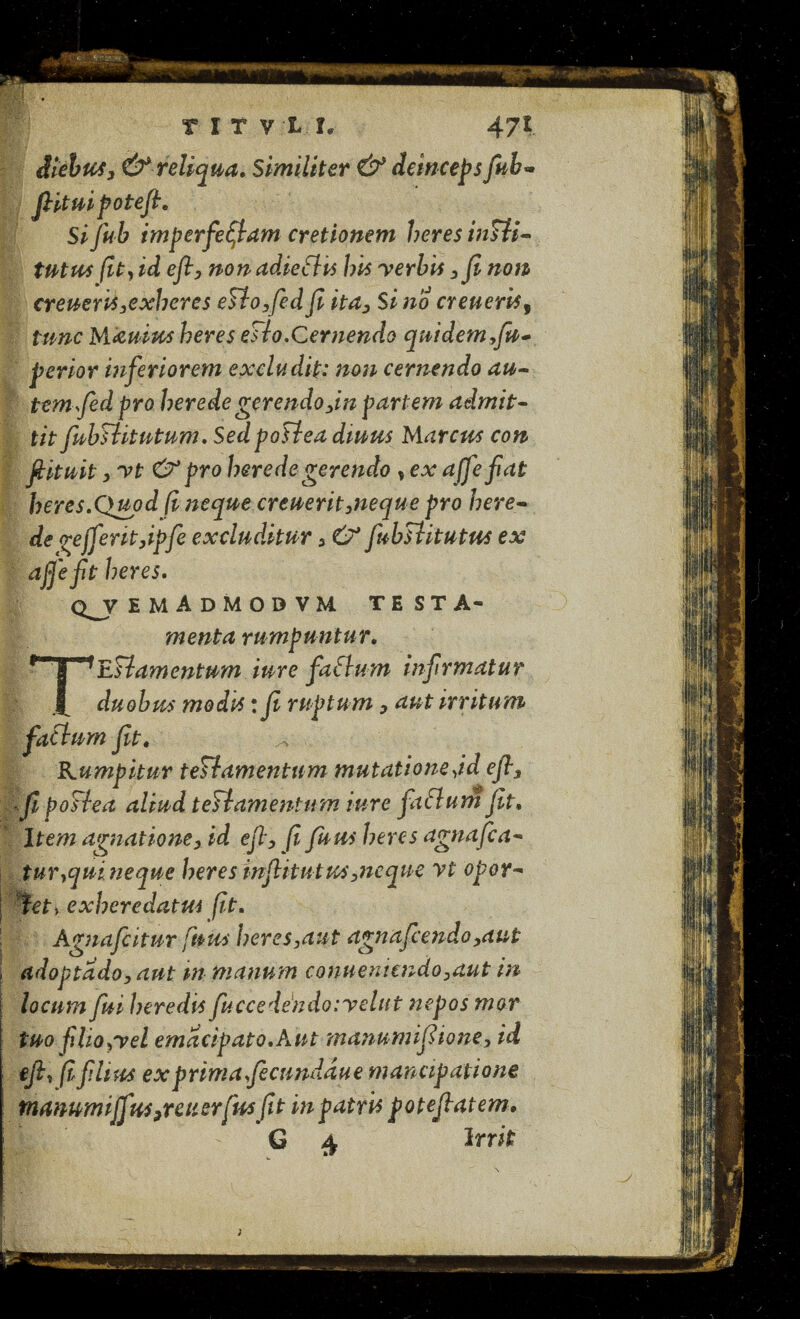 TITVLI. 471
diebus, & reliqua. Similiter & deinceps sub-
stitui potest.
Si sub imperfectam cretionem heres insti-
tutus sit, id est, non adiectis his verbis, si non
creueris, exheres esto, sed si ita, Si nō creueris,
tunc Mæuius heres esto. Cernendo quidem, su-
perior inferiorem excludit: non cernendo au-
tem, sed pro herede gerendo, in partem admit-
tit substitutum. Sed postea diuus Marcus con
stituit, vt & pro herede gerendo, ex asse fiat
heres. Quod si neque creuerit, neque pro here-
de gesserit, ipse excluditur, & substitutus ex
asse fit heres.
QVEMADMODVM TESTA-
menta rumpuntur.
TEstamentum iure factum infirmatur
duobus modis: si ruptum, aut irritum
factum sit.
Rumpitur testamentum mutatione, id est,
si postea aliud testamentum iure factum sit.
Item agnatione, id est, si suus heres agnasca-
tur, qui neque heres institutus, neque vt opor-
tet, exheredatus sit.
Agnascitur suus heres, aut agnascendo, aut
adoptādo, aut in manum conueniendo, aut in
locum sui heredis succedendo: velut nepos mor
tuo filio, vel emācipato. Aut manumissione, id
est, si filius ex prima, secundáue mancipatione
manumissus, reuersus sit in patris potestatem.
G 4 Irrit